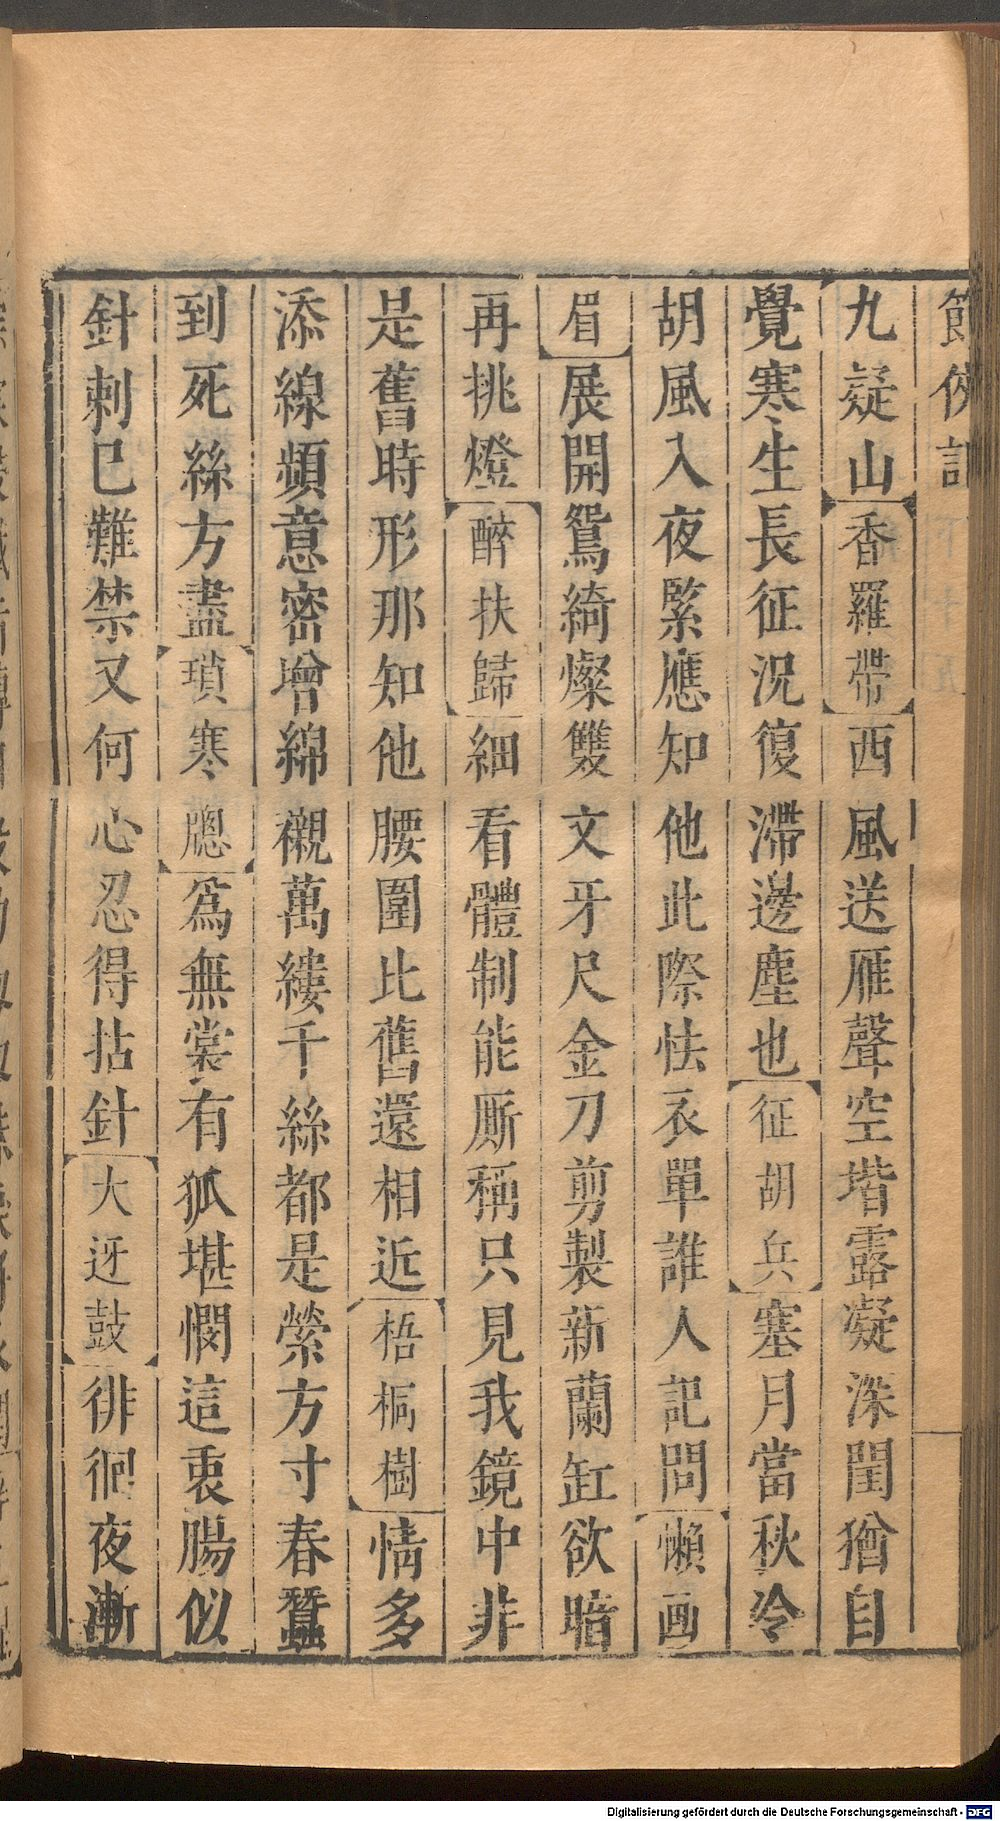 節俠記
九疑山香羅帶西風送雁聲空堦露凝深閨猶自
覺寒生長征況復滯邊塵也征胡兵塞月當秋冷
胡風入夜緊應知他此際怯衣單誰人記問懶画
眉展開鴛綺燦雙文牙尺金刀剪製新蘭缸欲暗
再挑燈醉扶歸細看體制能厮稱只見我鏡中非
是舊時形那知他腰圍比舊還相近梧桐樹情多
添線頻意密增綿襯萬縷千絲都是縈方寸春蠶
到死絲方盡瑣寒牕爲無裳有狐堪憫這衷腸似
針刺已難禁又何心忍得拈針大迓鼓徘徊夜漸
Digitalisierung gefördert durch die Deutsche Forschungsgemeinschaft - DFG